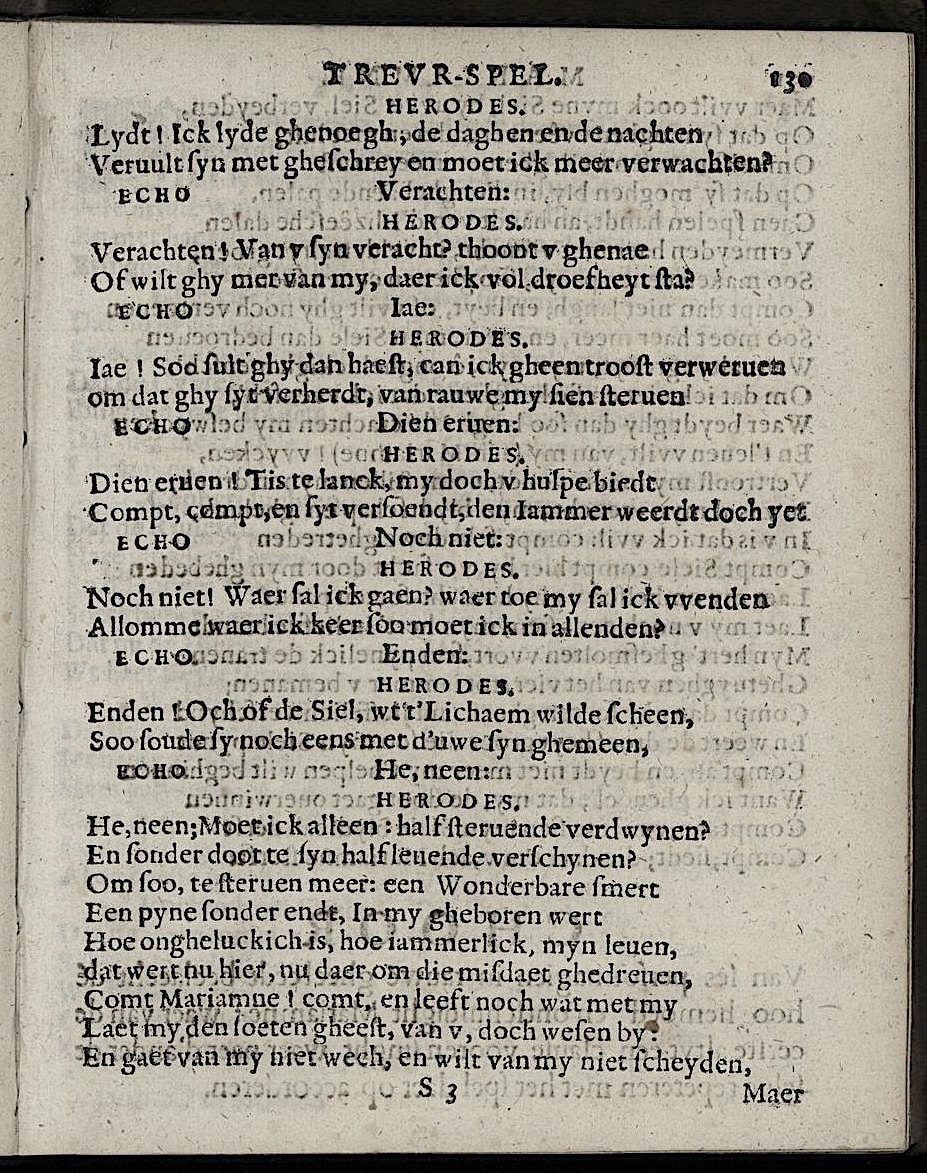 TREVR-SPEL. 130
HERODES.
Lydt! Ick lyde ghenoegh, de daghen en de nachten
Veruult syn met gheschrey en moet ick meer verwachten?
ECHO Verachten:
HERODES.
Verachten! Van v syn veracht? thoont v ghenae
Of wilt ghy met van my, daer ick vol droefheyt sta?
ECHO Iae:
HERODES.
Iae! Soo sult ghy dan haest, can ick gheen troost verweruen
om dat ghy syt verherdt, van rauwe my sien steruen
ECHO Dien eruen:
HERODES.
Dien eruen! Tis te lanck, my doch v hulpe biedt
Compt, compt, en syt versoendt, den Iammer weerdt doch yet
ECHO Noch niet:
HERODES.
Noch niet! Waer sal ick gaen? waer toe my sal ick vvenden
Allomme waer ick keer soo moet ick in allenden?
ECHO. Enden:
HERODES.
Enden! Och of de Siel, wt t'Lichaem wilde scheen,
Soo soude sy noch eens met d'uwe syn ghemeen,
ECHO. He, neen:
HERODES.
He, neen; Moet ick alleen: half steruende verdwynen?
En sonder doot te syn half leuende verschynen?
Om soo, te steruen meer: een Wonderbare smert
Een pyne sonder endt, In my gheboren wert
Hoe ongheluckich is, hoe iammerlick, myn leuen,
dat wert nu hier, nu daer om die misdaet ghedreuen,
Comt Mariamne! comt, en leeft noch wat met my
Laet my den soeten gheest, van v, doch wesen by:
En gaet van my niet wech, en wilt van my niet scheyden,
S 3 Maer